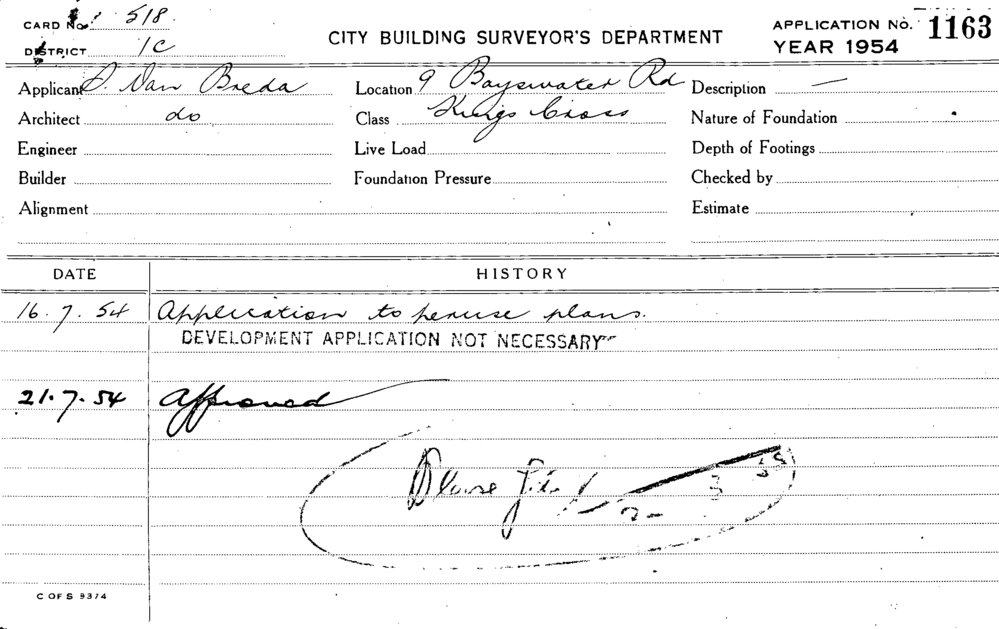 CARD No. 518
DISTRICT 1C
CITY BUILDING SURVEYOR'S DEPARTMENT
APPLICATION No. 1163
YEAR 1954
Applicant Van Breda
Architect do
Engineer
Builder
Alignment
Location 9 Bayswater Rd
Class Kings Cross
Live Load
Foundation Pressure
Description —
Nature of Foundation
Depth of Footings
Checked by
Estimate
DATE HISTORY
16.7.54 Application to peruse plans.
DEVELOPMENT APPLICATION NOT NECESSARY
21.7.54 Approved
C OF S 9374